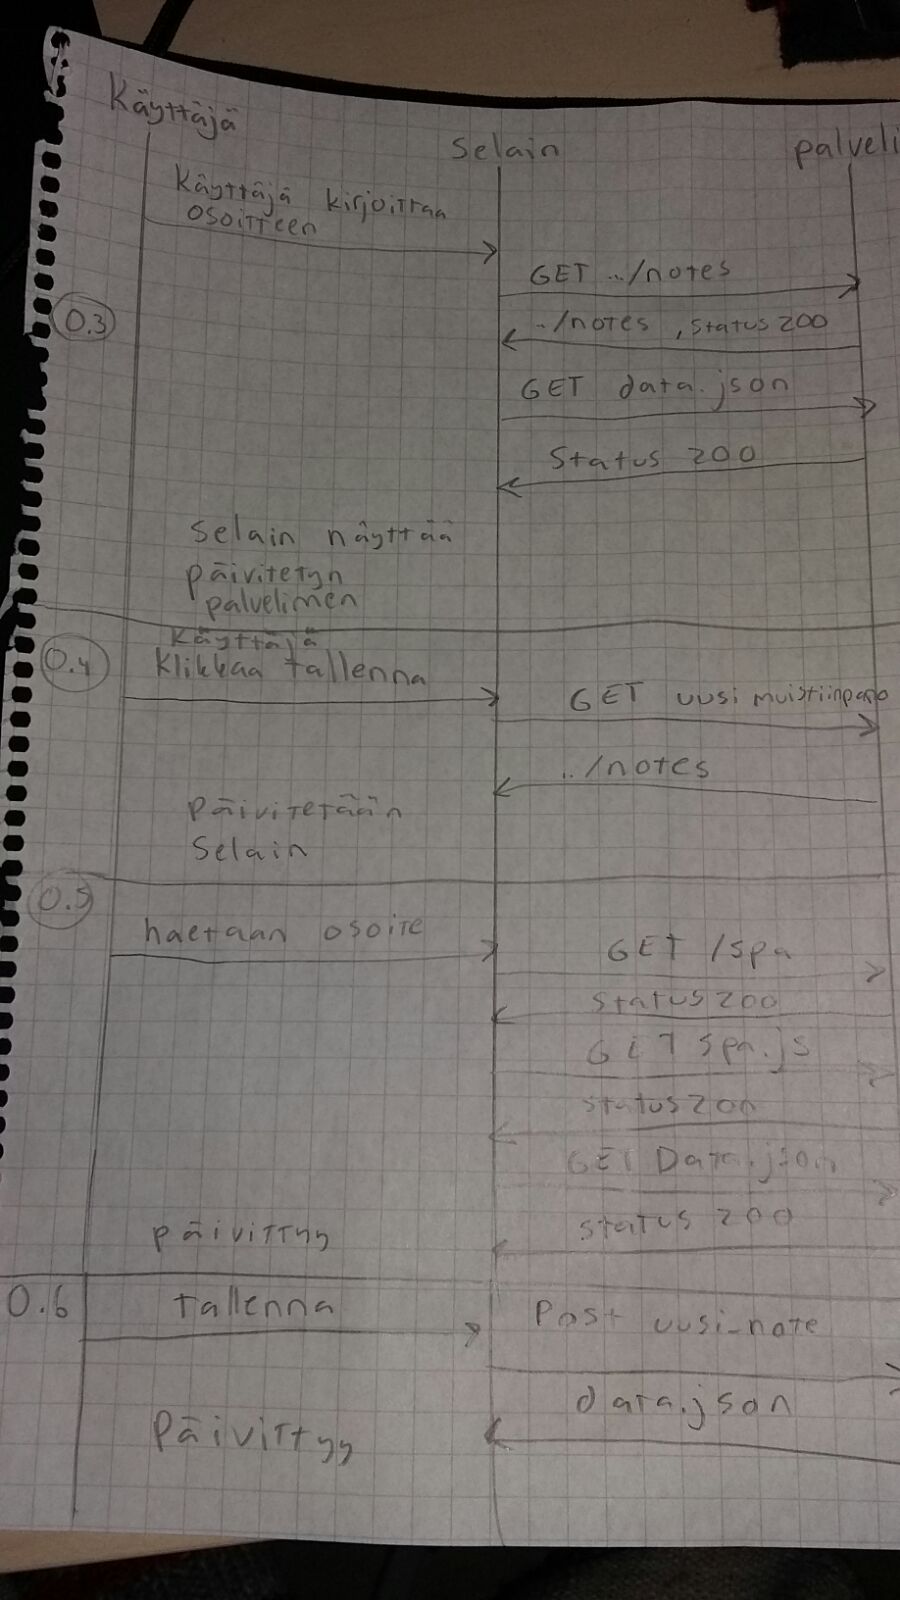 Käyttäjä
Selain
palveli
Käyttäjä kirjoittaa
osoitteen
GET ../notes
0.3
../notes , status 200
GET data.json
Status 200
Selain näyttää
päivitetyn
palvelimen
Käyttäjä
0.4
Klikkaa tallenna
GET uusi muistiinpano
../notes
Päivitetään
Selain
0.5
haetaan osoite
GET /spa
Status 200
GET spa.js
Status 200
GET Data.json
Status 200
päivittyy
0.6
Tallenna
Post uusi_note
data.json
Päivittyy